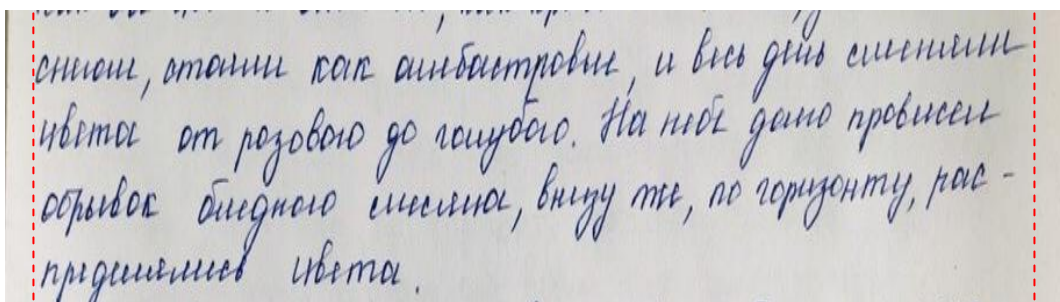 снегом, стояли как алебастровые, и весь день сменяли
цвета от розового до голубого. На небе дано провисел
обрывок бледного месяца, внизу же, по горизонту, рас-
пределялись цвета.